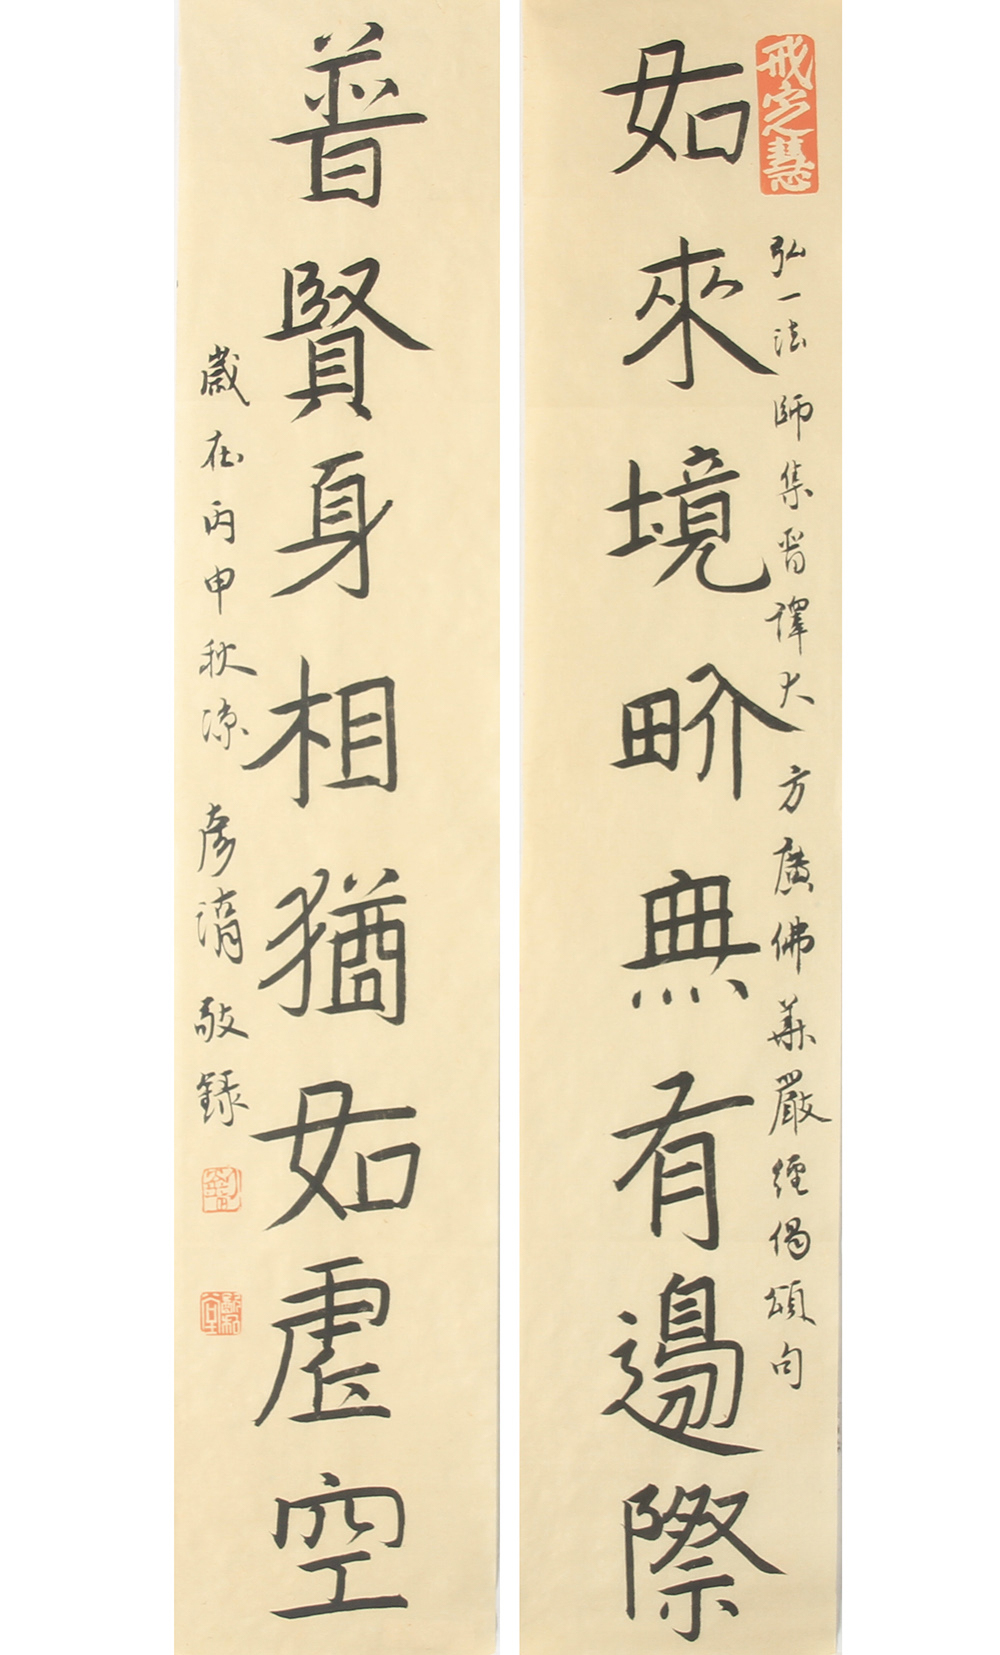 戒定慧
弘一法師集晉譯大方廣佛華嚴經偈頌句
如來境界無有邊際
普賢身相猶如虛空
歲在丙申秋涼 彥湑敬錄